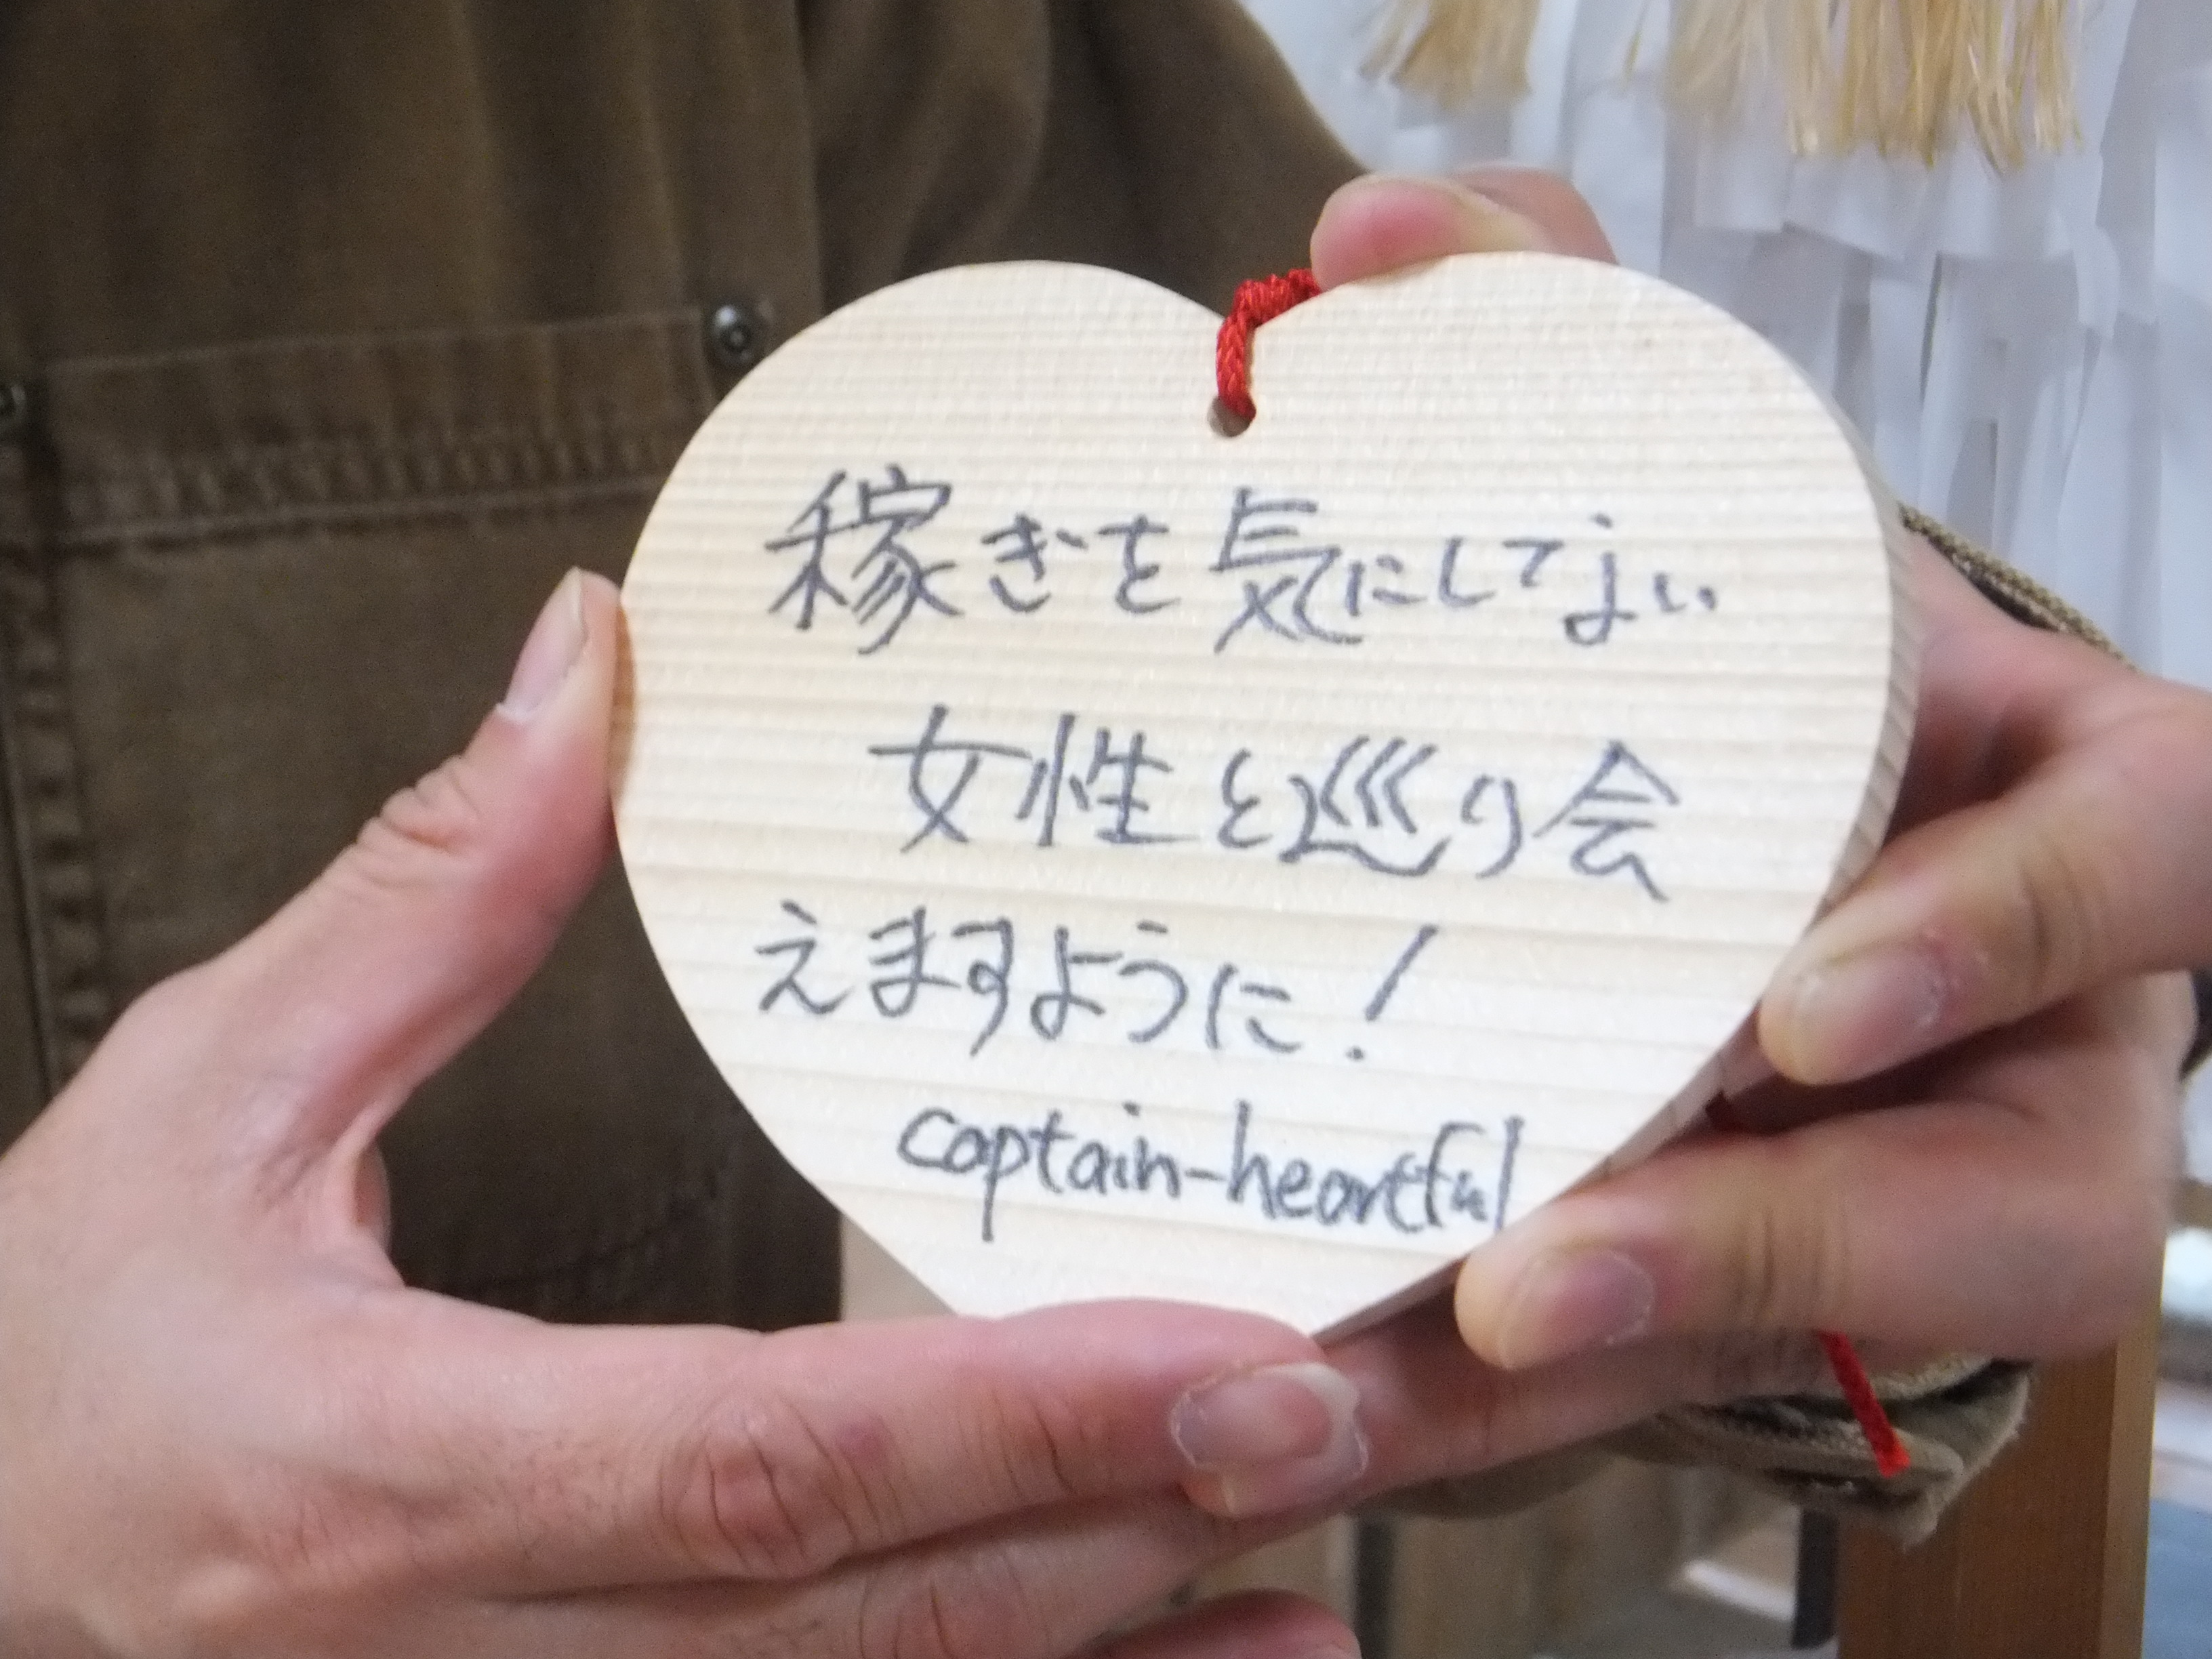 稼ぎを気にしてない
女性と巡り会
えますように！
captain-heartful